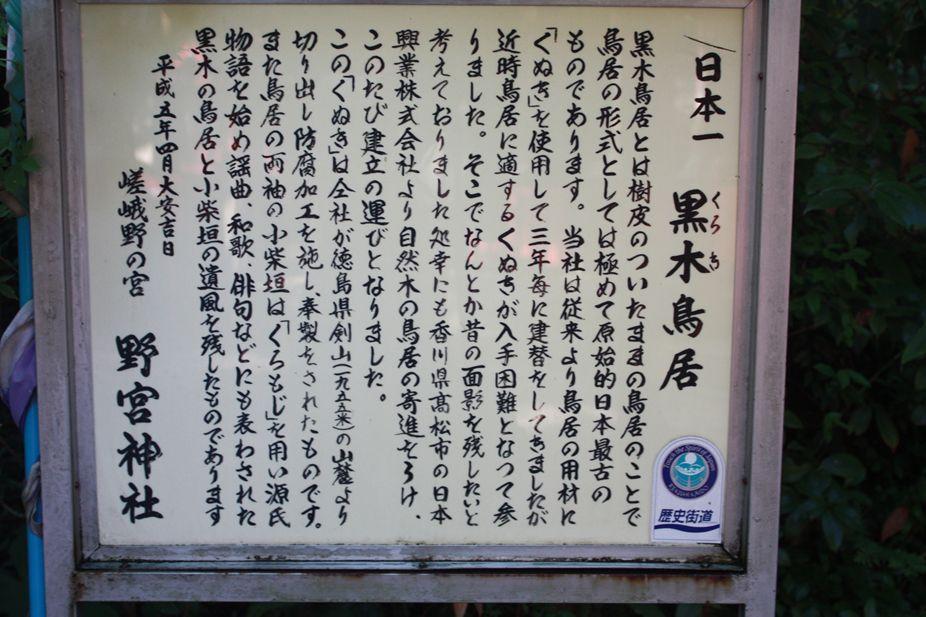 日本一 黒木鳥居
くろき
黒木鳥居とは樹皮のついたままの鳥居のことで
鳥居の形式としては極めて原始的日本最古の
ものであります。当社は従来より鳥居の用材に
「くぬき」を使用して三年毎に建替をしてきましたが
近時鳥居に適するくぬきが入手困難となつて参
りました。そこでなんとか昔の面影を残したいと
考えておりました処幸にも香川県高松市の日本
興業株式会社より自然木の鳥居の寄進をうけ、
このたび建立の運びとなりました。
この「くぬき」は仝社が徳島県剣山(一九五五米)の山麓より
切り出し防腐加工を施し、奉製をされたものです。
また鳥居の両袖の小柴垣は「くろもじ」を用い源氏
物語を始め謡曲、和歌、俳句などにも表わされた
黒木の鳥居と小柴垣の遺風を残したものであります
平成五年四月大安吉日
嵯峨野の宮 野宮神社
歴史街道